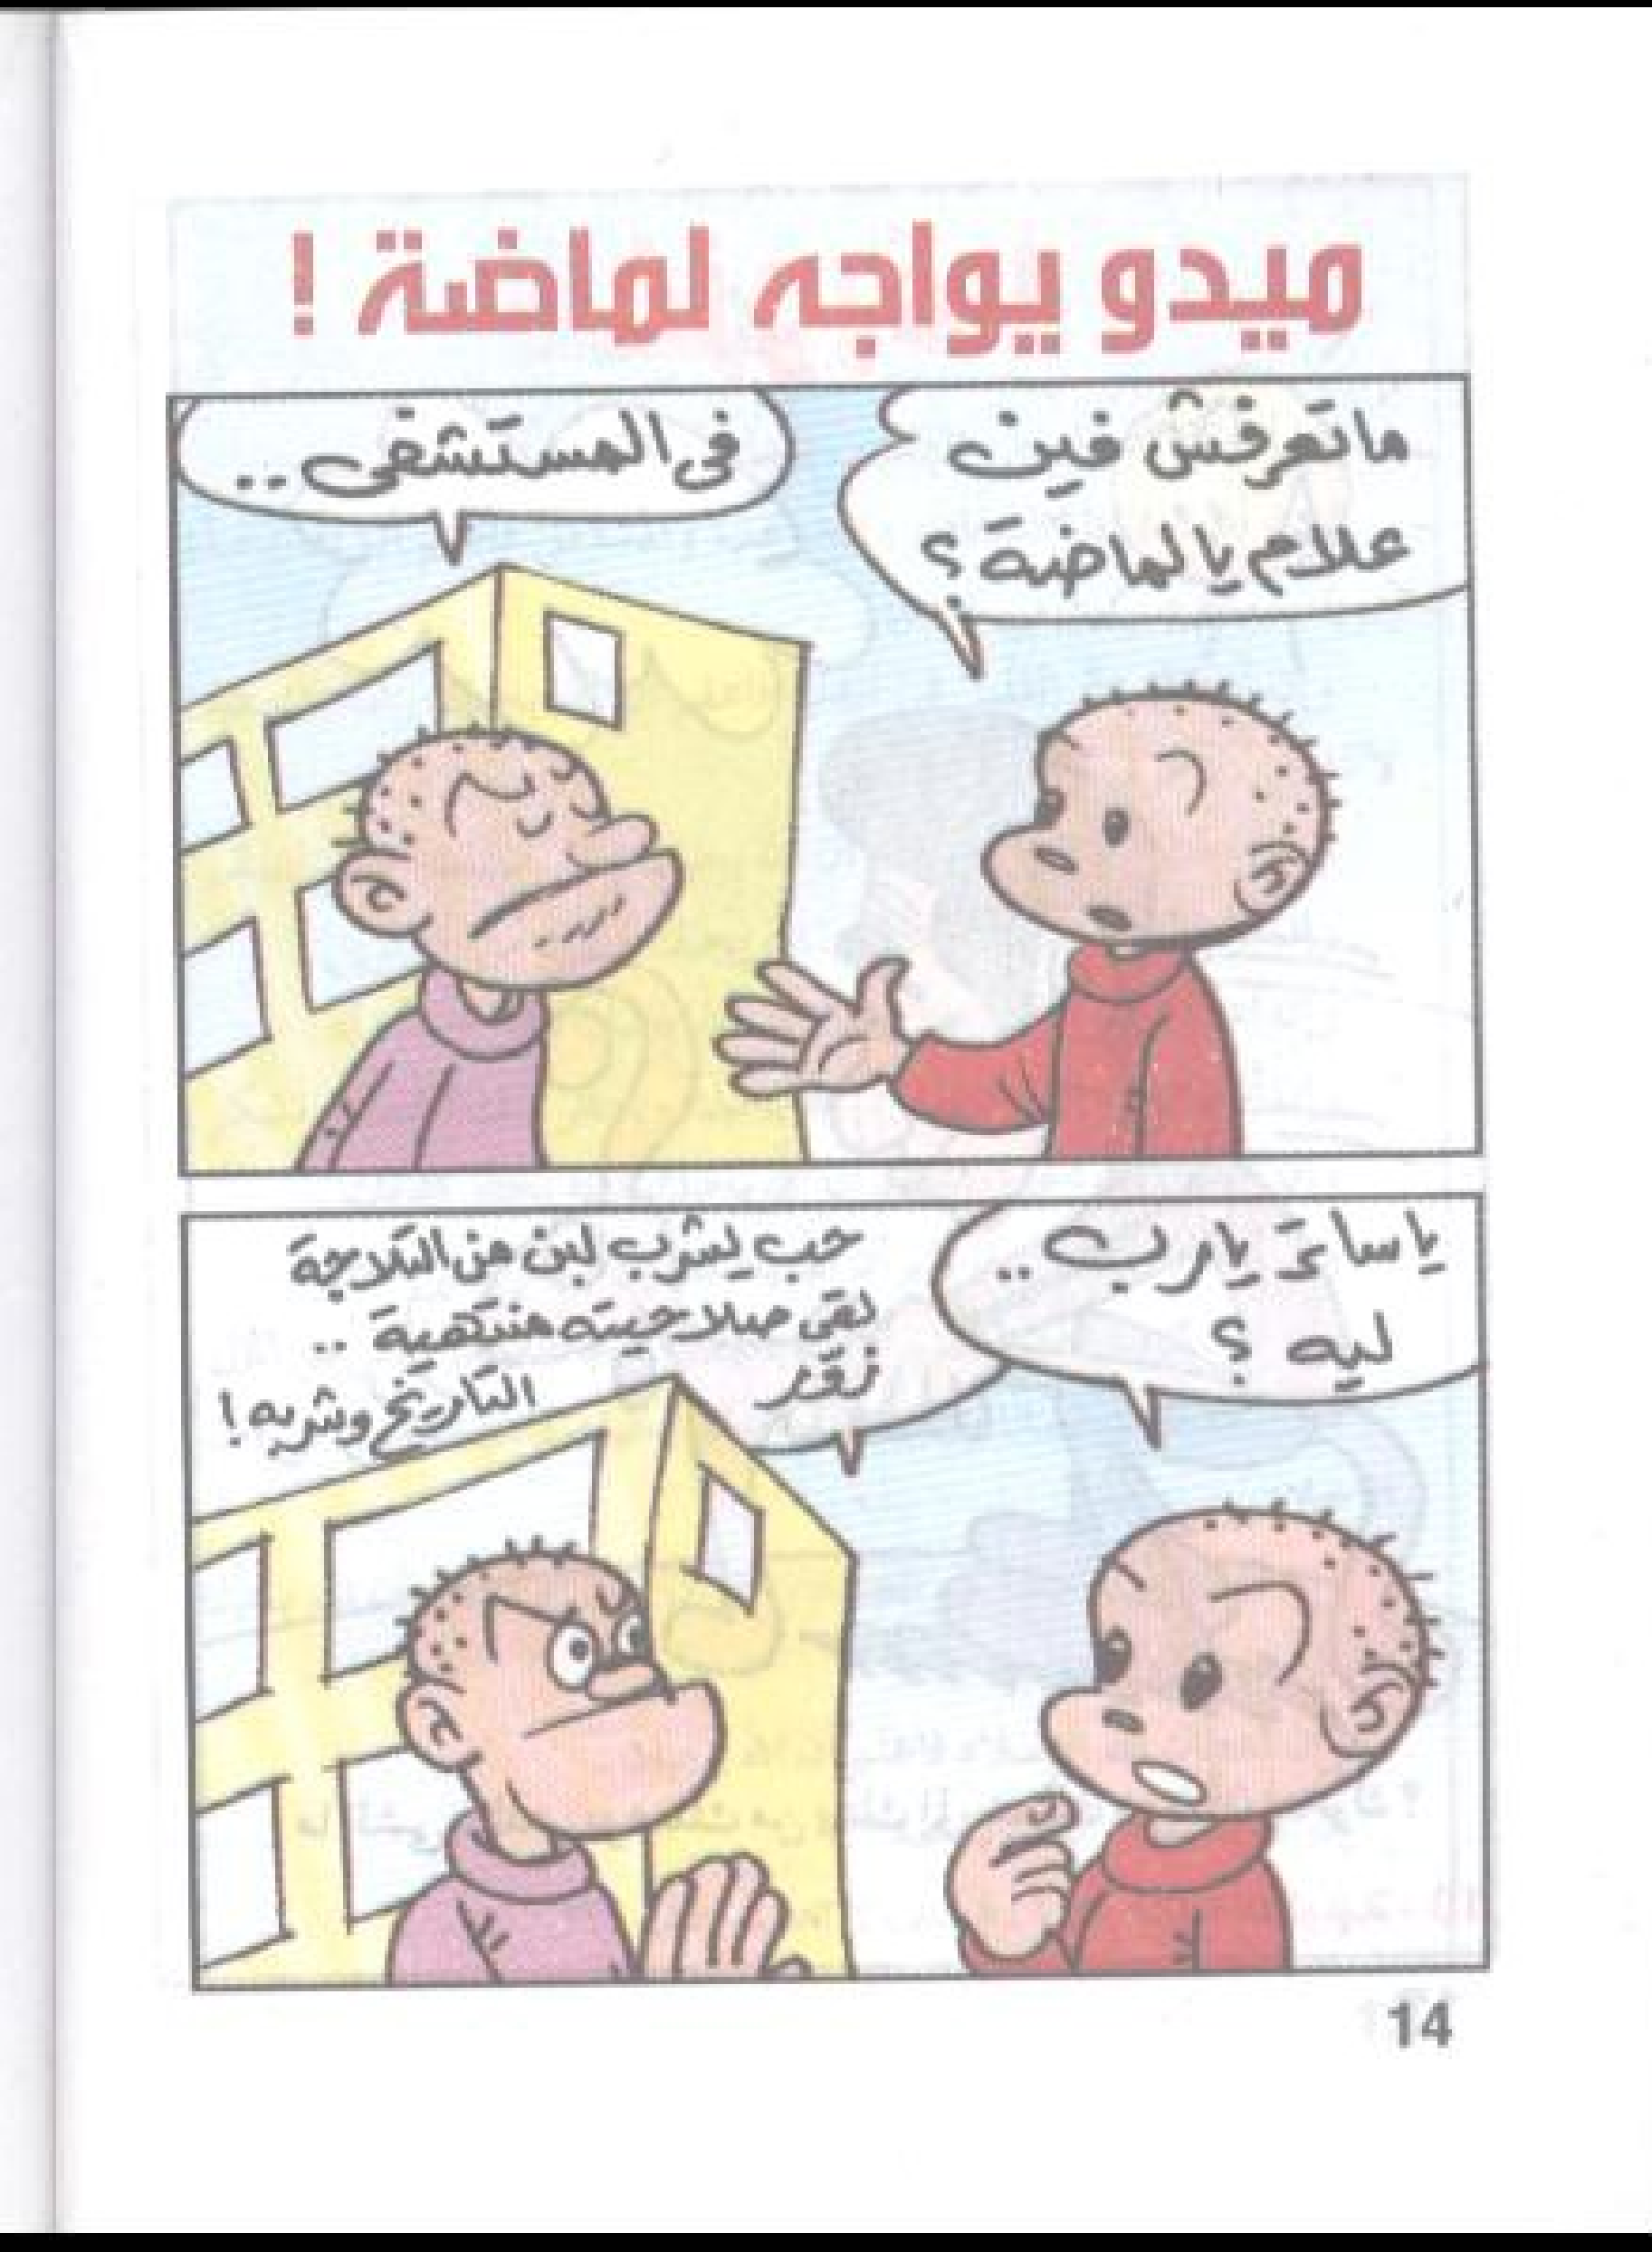 ميدو يواجه لماضة !
ماتعرفش فين
علام يالماضة ؟
فى المستشفى ..
ياساتر يارب ..
ليه ؟
حب يشرب لبن من التلاجة
لقى صلاحيته منتهية ..
زور
التاريخ وشربه !
14